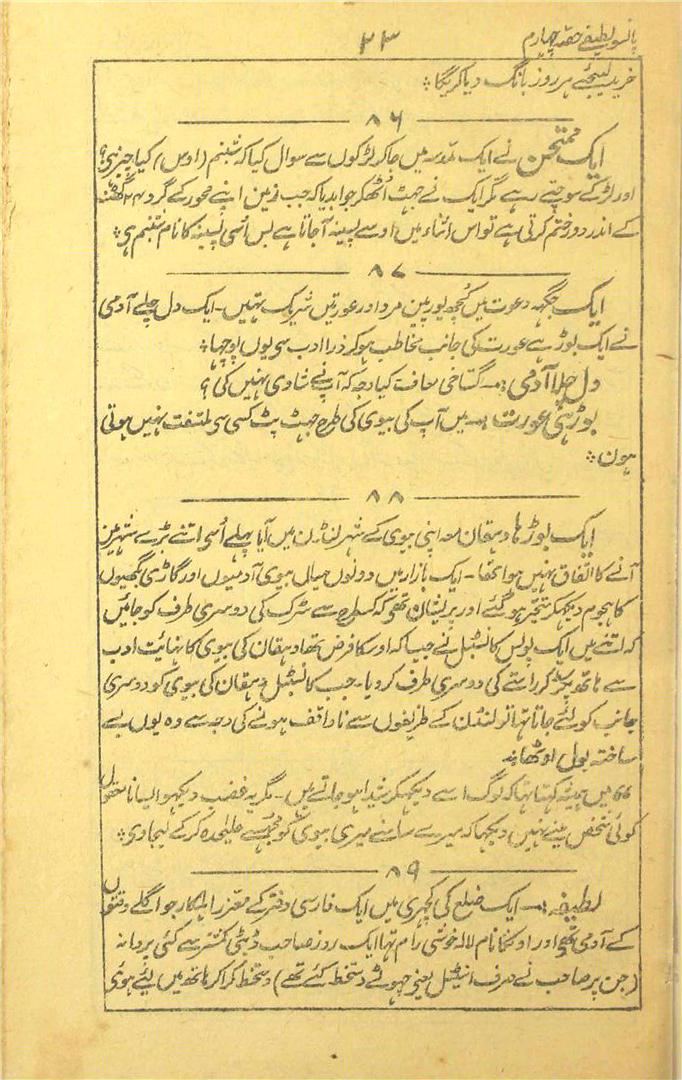 پانسو لطیفے حصہ چہارم ۲۳
خرید لیجئے ہر روز بانگ دیا کریگا ؞
۸۶
ایک ممتحن نے ایک مدرسہ میں جاکر لڑکوں سے سوال کیا کہ شبنم (اوس) کیا چیز ہی؟
اور لڑکے سوچتے رہے مگر ایک نے جھٹ اُٹھکر جواب دیا کہ جب زمین اپنے محور کے گرد ۲۴ گھنٹہ
کے اندر دور ختم کرتی ہے تو اس اثناء میں اوسے پسینہ آجاتا ہے بس اُسی پسینہ کا نام شبنم ہی ؞
۸۷
ایک جگہہ دعوت میں کُچھ یورپین مرد اور عورتیں شریک تہیں۔ ایک دل چلے آدمی
نے ایک بوڑہے عورت کی جانب مخاطب ہو کر ذرا ادب سی یوں پوچہا ؞
دل چلا آدمی :۔ گستاخی معاف کیا وجہ کہ آپنے شادی نہیں کی ؟
بوڑہی عورت :۔ میں آپ کی بیوی کی طرح جہٹ پٹ کسی سی ملتفت نہیں ہوتی
ہون ؞
۸۸
ایک بوڑہا دہقان معہ اپنی بیوی کے شہر لنڈن میں آیا پہلے اُسی اتنے بڑے شہر میں
آنے کا اتفاق نہیں ہوا تھا۔ ایک بازار میں دونوں میاں بیوی آدمیوں اور گاڑی بگھیوں
کا ہجوم دیکھکر متحیّر ہو گئے اور پریشان تھے کہ کسطرح سے سڑک کی دوسری طرف کو جائیں
کہ اتنے میں ایک پولس کانسٹبل نے جیسا کہ اوسکا فرض تھا دہقان کی بیوی کا نہائیت ادب
سے ہاتھ پکڑ کر راستے کی دوسری طرف کر دیا۔ جب کانسٹبل دہقان کی بیوی کو دوسری
جانب کو لئے جاتا تہا تو لنڈن کے طریقوں سے ناواقف ہونے کی وجہ سے وہ یوں بے
ساختہ بول اوٹھا ؞
‘‘ میں ہمیشہ کہتا تہا کہ لوگ اسے دیکھکر شیدا ہو جاتے ہیں۔ مگر یہ غضب دیکھو ایسا نامعقول
کوئی شخص مینے نہیں دیکھا کہ میرے سامنے میری بیوی کو مجھسے علیٰحدہ کر کے لیجاوی ؞
۸۹
لطیفہ :۔ ایک ضلع کی کچہری میں ایک فارسی دفتر کے معزز اہلکار جو اگلے وقتوں
کے آدمی تھے اور اونکا نام لالہ خوشی رام تہا ایک روز صاحب ڈپٹی کمشنر سے کئی پروانہ
(جن پر صاحب نے صرف انیشل یعنی چہوٹے دستخط کئے تھے) دستخط کرا کر ہاتھ میں لیئے ہوئی